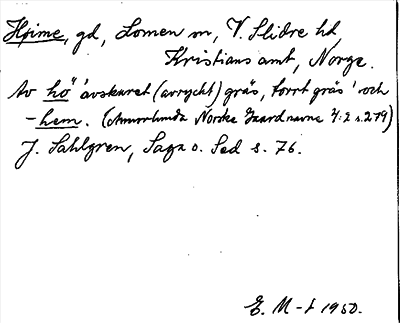 Høime, gd, Lomen sn, V. Slidre hd,
Kristians amt, Norge.
Av hö 'avskuret (avryckt) gräs, torrt gräs' och
-hem. (Norske Gaardnavne 4:2 s. 279)
J. Sahlgren, Saga o. Sed s. 76.
E. M-t 1950.